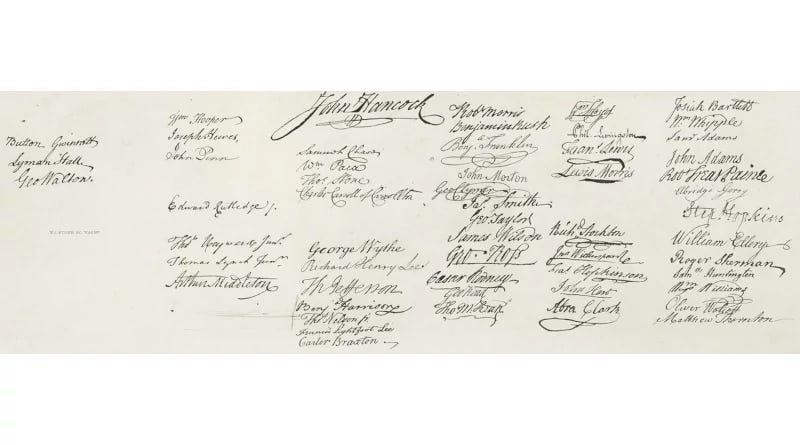 Button Gwinnett
Lyman Hall
Geo Walton.
Wm Hooper
Joseph Hewes,
John Penn
Edward Rutledge /.
Thos Heyward Junr.
Thomas Lynch Junr.
Arthur Middleton
John Hancock
Samuel Chase
Wm Paca
Thos Stone
Charles Carroll of Carrollton
George Wythe
Richard Henry Lee
Th Jefferson
Benj Harrison
Thos Nelson jr.
Francis Lightfoot Lee
Carter Braxton
Robt Morris
Benjamin Rush
Benj Franklin
John Morton
Geo Clymer
Jas Smith
Geo. Taylor
James Wilson
Geo. Ross
Caesar Rodney
Geo Read
Tho M:Kean
Wm Floyd
Phil. Livingston
Frans. Lewis
Lewis Morris
Richd Stockton
Jno Witherspoon
Fras Hopkinson
John Hart
Abra Clark
Josiah Bartlett
Wm Whipple
Saml Adams
John Adams
Robt Treat Paine
Elbridge Gerry
Step Hopkins
William Ellery
Roger Sherman
Saml Huntington
Wm Williams
Oliver Wolcott
Matthew Thornton